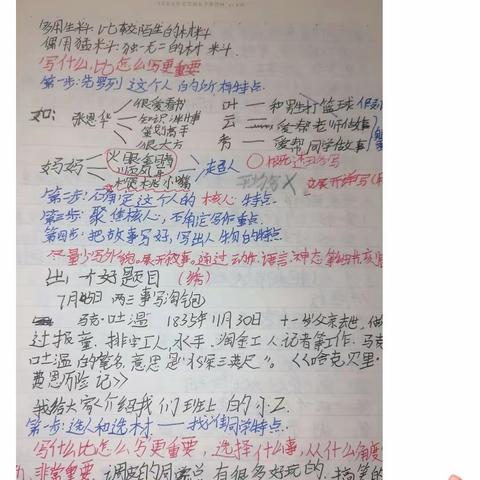 多用生料:比较陌生的材料
偶用猛料:独一无二的材料
写什么,比怎么写更重要
第一步:先罗列这个人的所有特点.
如: 张恩华 很爱看书 知识渊博 笔划高手 很大方
叶 — 和男打篮球
云 — 爱帮老师做事
秀 — 爱帮同学做事
妈妈 火眼金睛 顺风耳 小嘴 超人
平均写X 展开来写
第二步:确定这个人的核心特点.
第三步:聚焦核心,确定写作重点.
第四步:把故事写好,写出人物的特点
尽量少写外貌.展开叙事.通过动作.语言.神态等细节
出一个好题目
7月 日 两三事写淘包
马克·吐温 1835年11月30日 十一岁父亲去世,做
过报童、排字工人,水手,淘金工人记者等工作.马克
吐温的笔名,意思是"水深三英尺"。《哈克贝里·
费恩历险记》
我给大家介绍我们班上的小工
第一步:选人和选材—我 同学特点.
写什么比怎么写更重要,选择什么事,从什么角度
非常重要. 调皮的同学 有很多好玩的、搞笑的